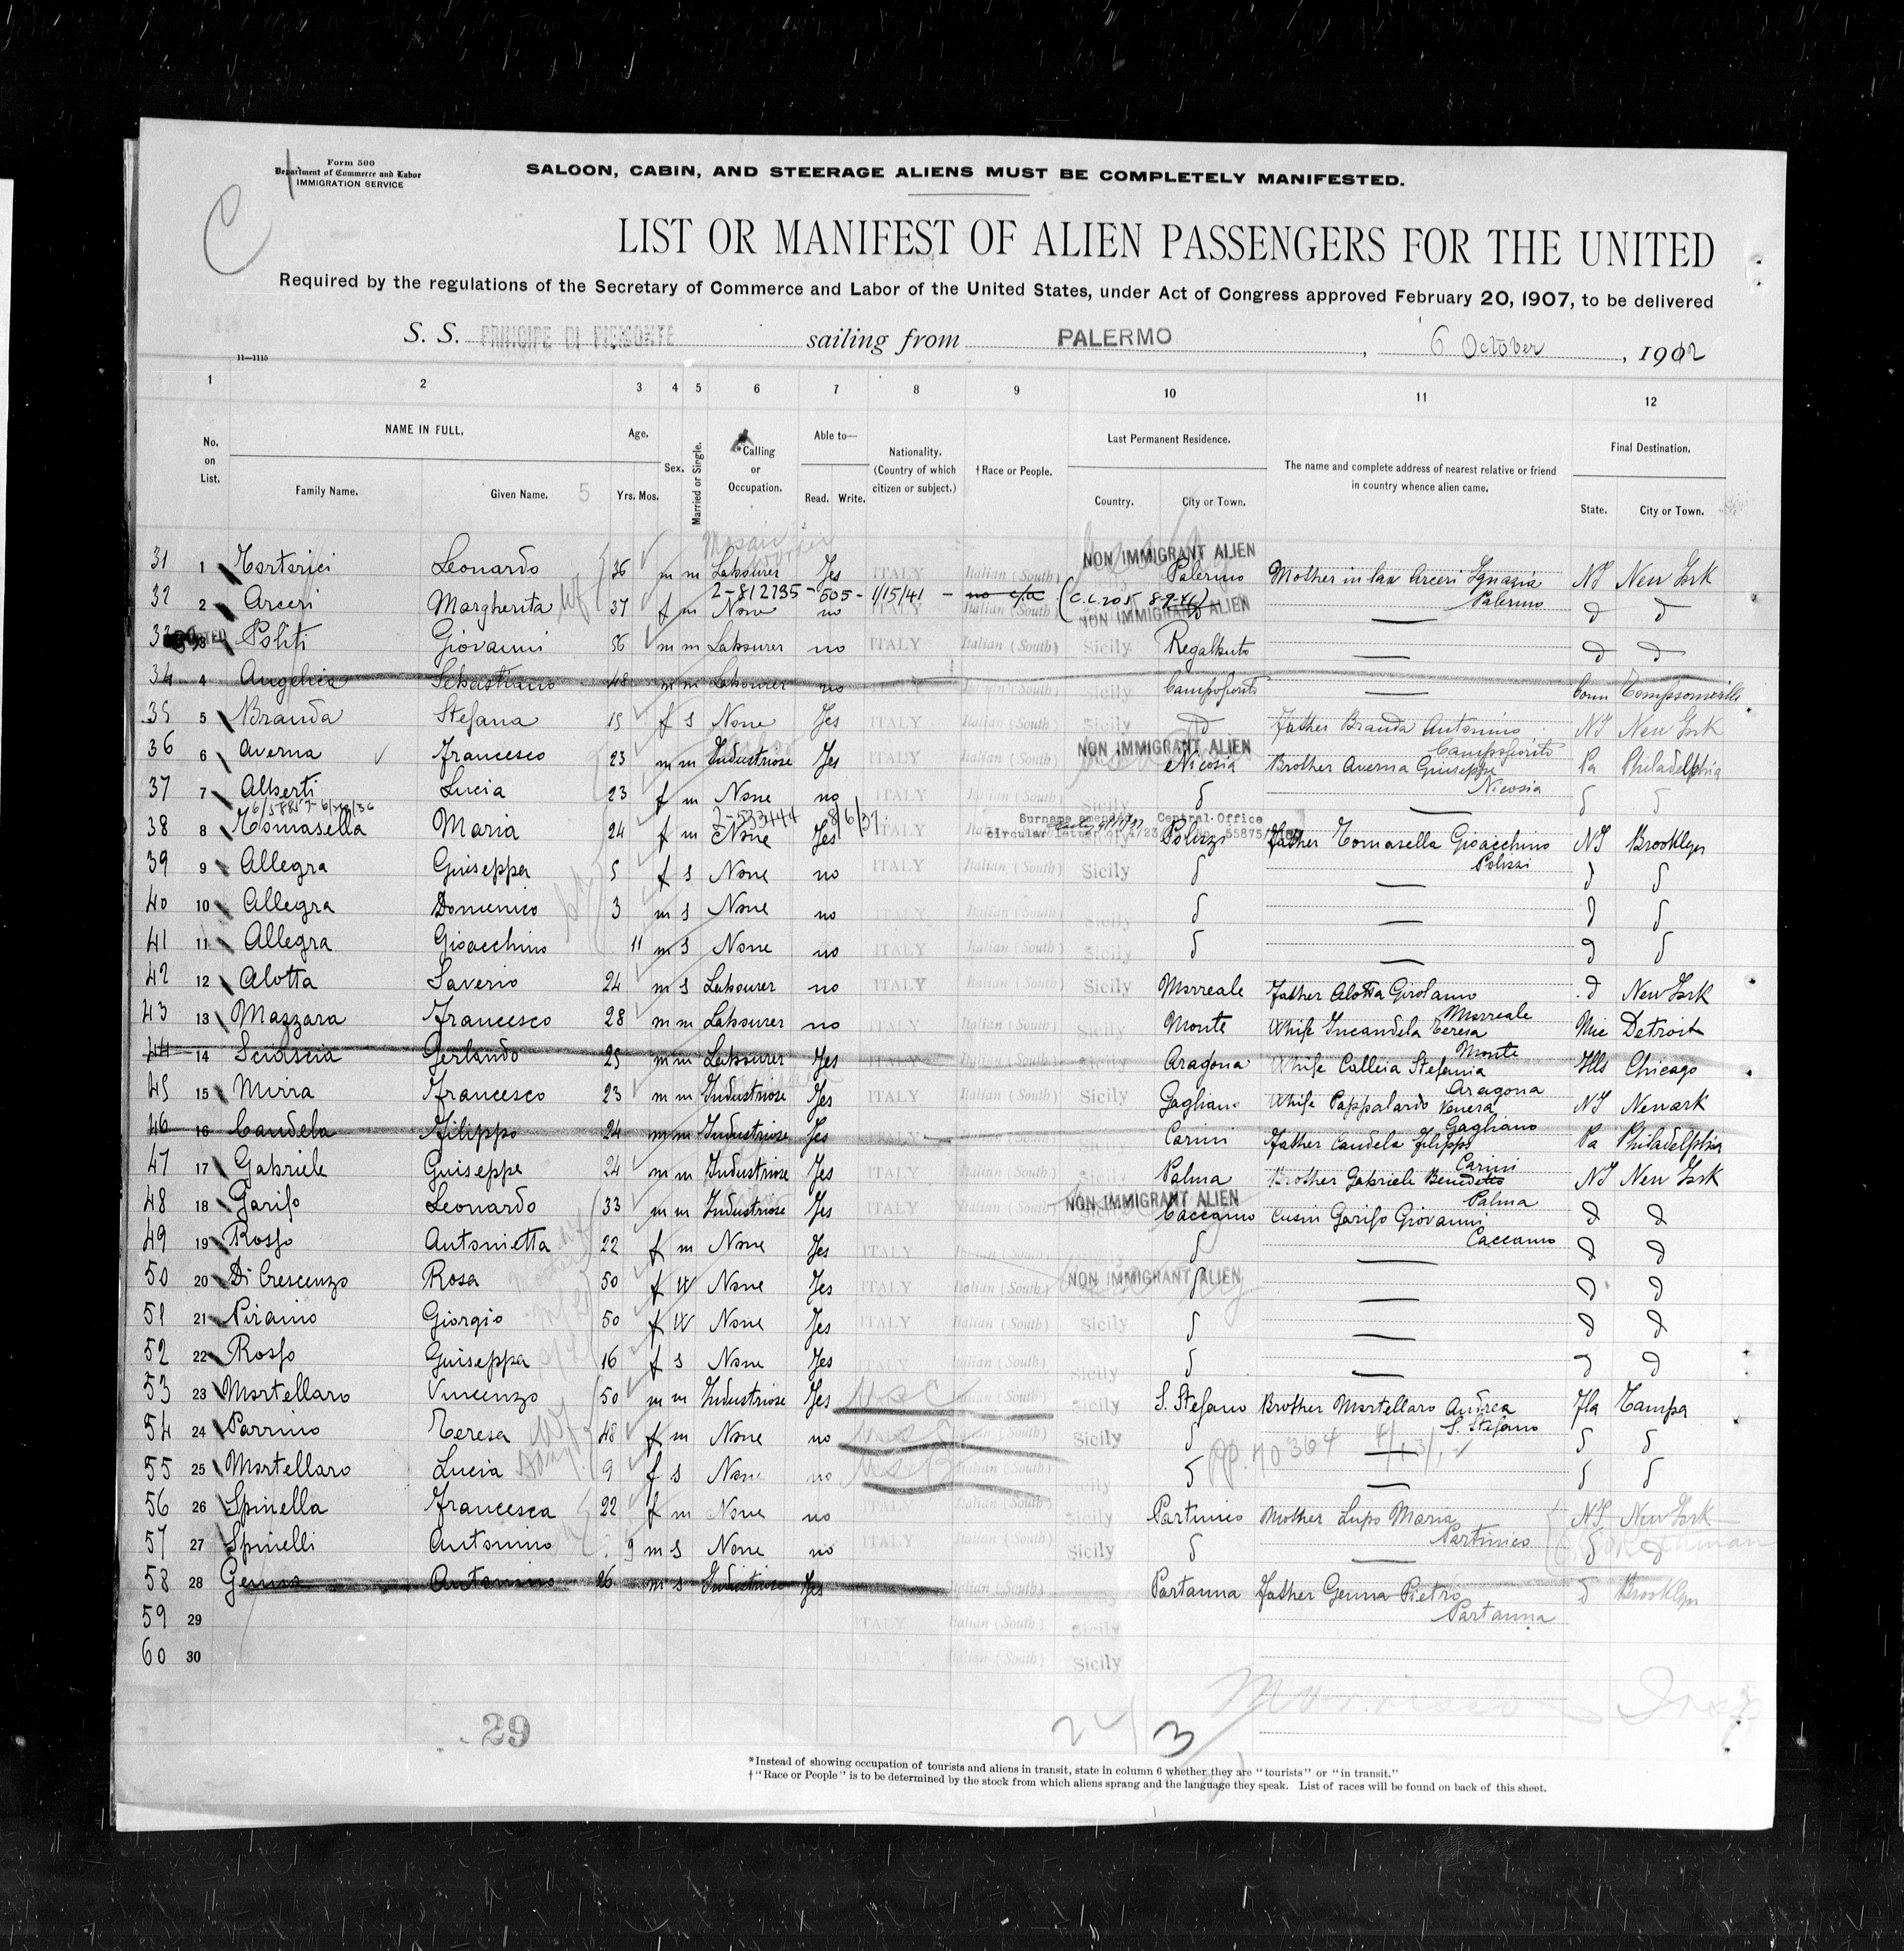 Form 500
Department of Commerce and Labor
IMMIGRATION SERVICE
C
SALOON, CABIN, AND STEERAGE ALIENS MUST BE COMPLETELY MANIFESTED.
LIST OR MANIFEST OF ALIEN PASSENGERS FOR THE UNITED
Required by the regulations of the Secretary of Commerce and Labor of the United States, under Act of Congress approved February 20, 1907, to be delivered
S. S. PRINCIPE DI PIEMONTE sailing from PALERMO, 6 October, 1912
11—1115
1 2 3 4 5 6 7 8 9 10 11 12
No. on List. NAME IN FULL. Family Name. Given Name. 5 Age. Yrs. Mos. Sex. Married or Single. *Calling or Occupation. Able to— Read. Write. Nationality. (Country of which citizen or subject.) †Race or People. Last Permanent Residence. Country. City or Town. The name and complete address of nearest relative or friend in country whence alien came. Final Destination. State. City or Town.
31 1 Tortorici Leonardo 36 m m Labourer Yes ITALY Italian (South) NON IMMIGRANT ALIEN Palermo Mother in law Arceri Ignazia NY New York
2-812735-505-1/15/41 - no c/a Palermo
32 2 Arceri Margherita wf 37 f m None no ITALY NON IMMIGRANT ALIEN — d d
33 3 Politi Giovanni 56 m m Labourer no ITALY Italian (South) Sicily Regalbuto — d d
34 4 Angelica Sebastiano 48 m m Labourer no ITALY Italian (South) Sicily Campofiorito — Conn Tompsonville
35 5 Branda Stefana 15 f s None Yes ITALY Italian (South) Sicily d Father Branda Antonino NY New York
Campofiorito
36 6 Averna Francesco 23 m m Industriose Yes ITALY Italian (South) NON IMMIGRANT ALIEN Nicosia Brother Averna Giuseppe Pa Philadelphia
Nicosia
37 7 Alberti Lucia 23 f m None no ITALY Italian (South) Sicily d — d d
2-533444 8/6/37
Surname amended Central Office
circular letter of
38 8 Tomasella Maria 24 f m None Yes ITALY Polizzi Father Tomasella Gioacchino NY Brooklyn
Polizzi
39 9 Allegra Guiseppa 5 f s None no ITALY Italian (South) Sicily d — d d
40 10 Allegra Domenico 3 m s None no ITALY Italian (South) Sicily d — d d
41 11 Allegra Gioacchino 11 m s None no ITALY Italian (South) Sicily d — d d
42 12 Alotta Saverio 24 m s Labourer no ITALY Italian (South) Sicily Morreale Father Alotta Girolamo d New York
Morreale
43 13 Mazzara Francesco 28 m m Labourer no ITALY Italian (South) Sicily Monte Whife Incandela Teresa Mic Detroit
Monte
44 14 Sciascia Gerlando 25 m m Labourer Yes ITALY Italian (South) Sicily Aragona Whife Calleia Stefania Ills Chicago
Aragona
45 15 Mirra Francesco 23 m m Industriose Yes ITALY Italian (South) Sicily Gagliano Whife Pappalardo Venera NY Newark
Gagliano
46 16 Candela Filippo 24 m m Industriose Yes ITALY Italian (South) Sicily Carini Father Candela Filippo Pa Philadelphia
Carini
47 17 Gabriele Guiseppe 24 m m Industriose Yes ITALY Italian (South) Sicily Palma Brother Gabriele Benedetto NY New York
Palma
48 18 Garifo Leonardo 33 m m Industriose Yes ITALY Italian (South) NON IMMIGRANT ALIEN Caccamo Cusin Garifo Giovanni d d
Caccamo
49 19 Rosso Antonietta 22 f m None Yes ITALY d — d d
50 20 Di Crescenzo Rosa 50 f W None Yes ITALY Italian (South) NON IMMIGRANT ALIEN d — d d
51 21 Piraino Giorgio 50 f W None Yes ITALY Italian (South) Sicily d — d d
52 22 Rosso Guiseppa 16 f s None Yes ITALY Italian (South) Sicily d — d d
53 23 Mortellaro Vincenzo 50 m m Industriose Yes U.S.C. Italian (South) Sicily S. Stefano Brother Mortellaro Andrea Fla Tampa
S. Stefano
54 24 Parrino Teresa wf 48 f m None no U.S.C. Italian (South) Sicily d — d d
55 25 Mortellaro Lucia 9 f s None no Italian (South) Sicily d — d d
56 26 Spinella Francesca 22 f m None no ITALY Italian (South) Sicily Partinico Mother Lupo Maria NY New York
Partinico
57 27 Spinelli Antonino 9 m s None no ITALY Italian (South) Sicily d — d d
58 28 Genna Antonino 26 m s Industriose Yes Italian (South) Sicily Partanna Father Genna Pietro d Brooklyn
Partanna
59 29 ITALY Italian (South) Sicily
60 30 ITALY Italian (South) Sicily
29
3
*Instead of showing occupation of tourists and aliens in transit, state in column 6 whether they are "tourists" or "in transit."
†"Race or People" is to be determined by the stock from which aliens sprang and the language they speak. List of races will be found on back of this sheet.